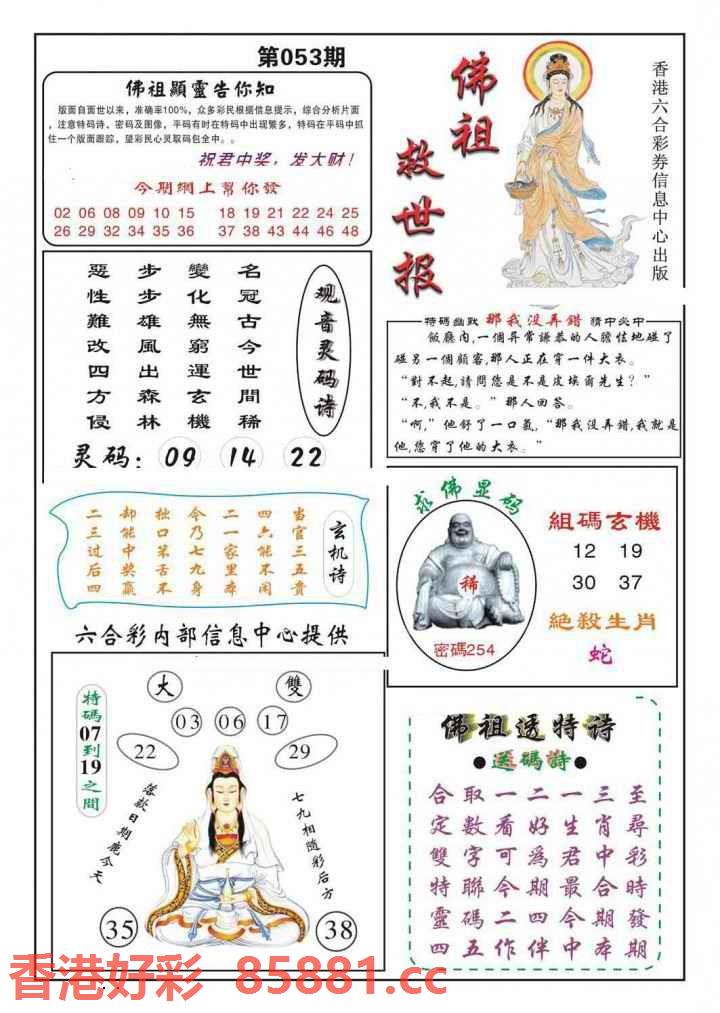 第053期
佛祖顯靈告你知
版面自面世以来，准确率100%，众多彩民根据信息提示，综合分析片面
，注意特码诗、密码及图像，平码有时在特码中出现繁多，特码在平码中抓
住一个版面跟踪，望彩民心灵取码包全中。。
祝君中奖，发大财！
今期網上幫你發
02 06 08 09 10 15 18 19 21 22 24 25
26 29 32 34 35 36 37 38 43 44 46 48
佛祖
救世报
香港六合彩券信息中心出版
惡步變名
性步化冠
難雄無古
改風窮今
四出運世
方森玄間
侵林機稀
观音灵码诗
灵码：09 14 22
特碼幽默 那我没弄錯 猜中必中
飯廳内,一個异常謙恭的人膽怯地碰了
碰另一個顧客,那人正在穿一件大衣。
“對不起,請問您是不是皮埃爾先生？”
“不,我不是。”那人回答。
“啊,”他舒了一口氣,“那我没弄錯,我就是
他,您穿了他的大衣。”
二却拙今二四当
三能口乃一六官
过中笨七家能三
后奖舌九里不五
四赢不身本闲贵
玄机诗
六合彩内部信息中心提供
求佛显码
稀
密碼254
組碼玄機
12 19
30 37
絕殺生肖
蛇
大 雙
特碼07到19之間
03 06 17
22 29
落款日期鹿今天
七九相随彩后方
35 38
佛祖透特诗
送碼詩
合取一二一三至
定數看好生肖尋
雙字可爲君中彩
特聯今期最合時
靈碼二四今期發
四五作伴中本期
香港好彩 85881.cc